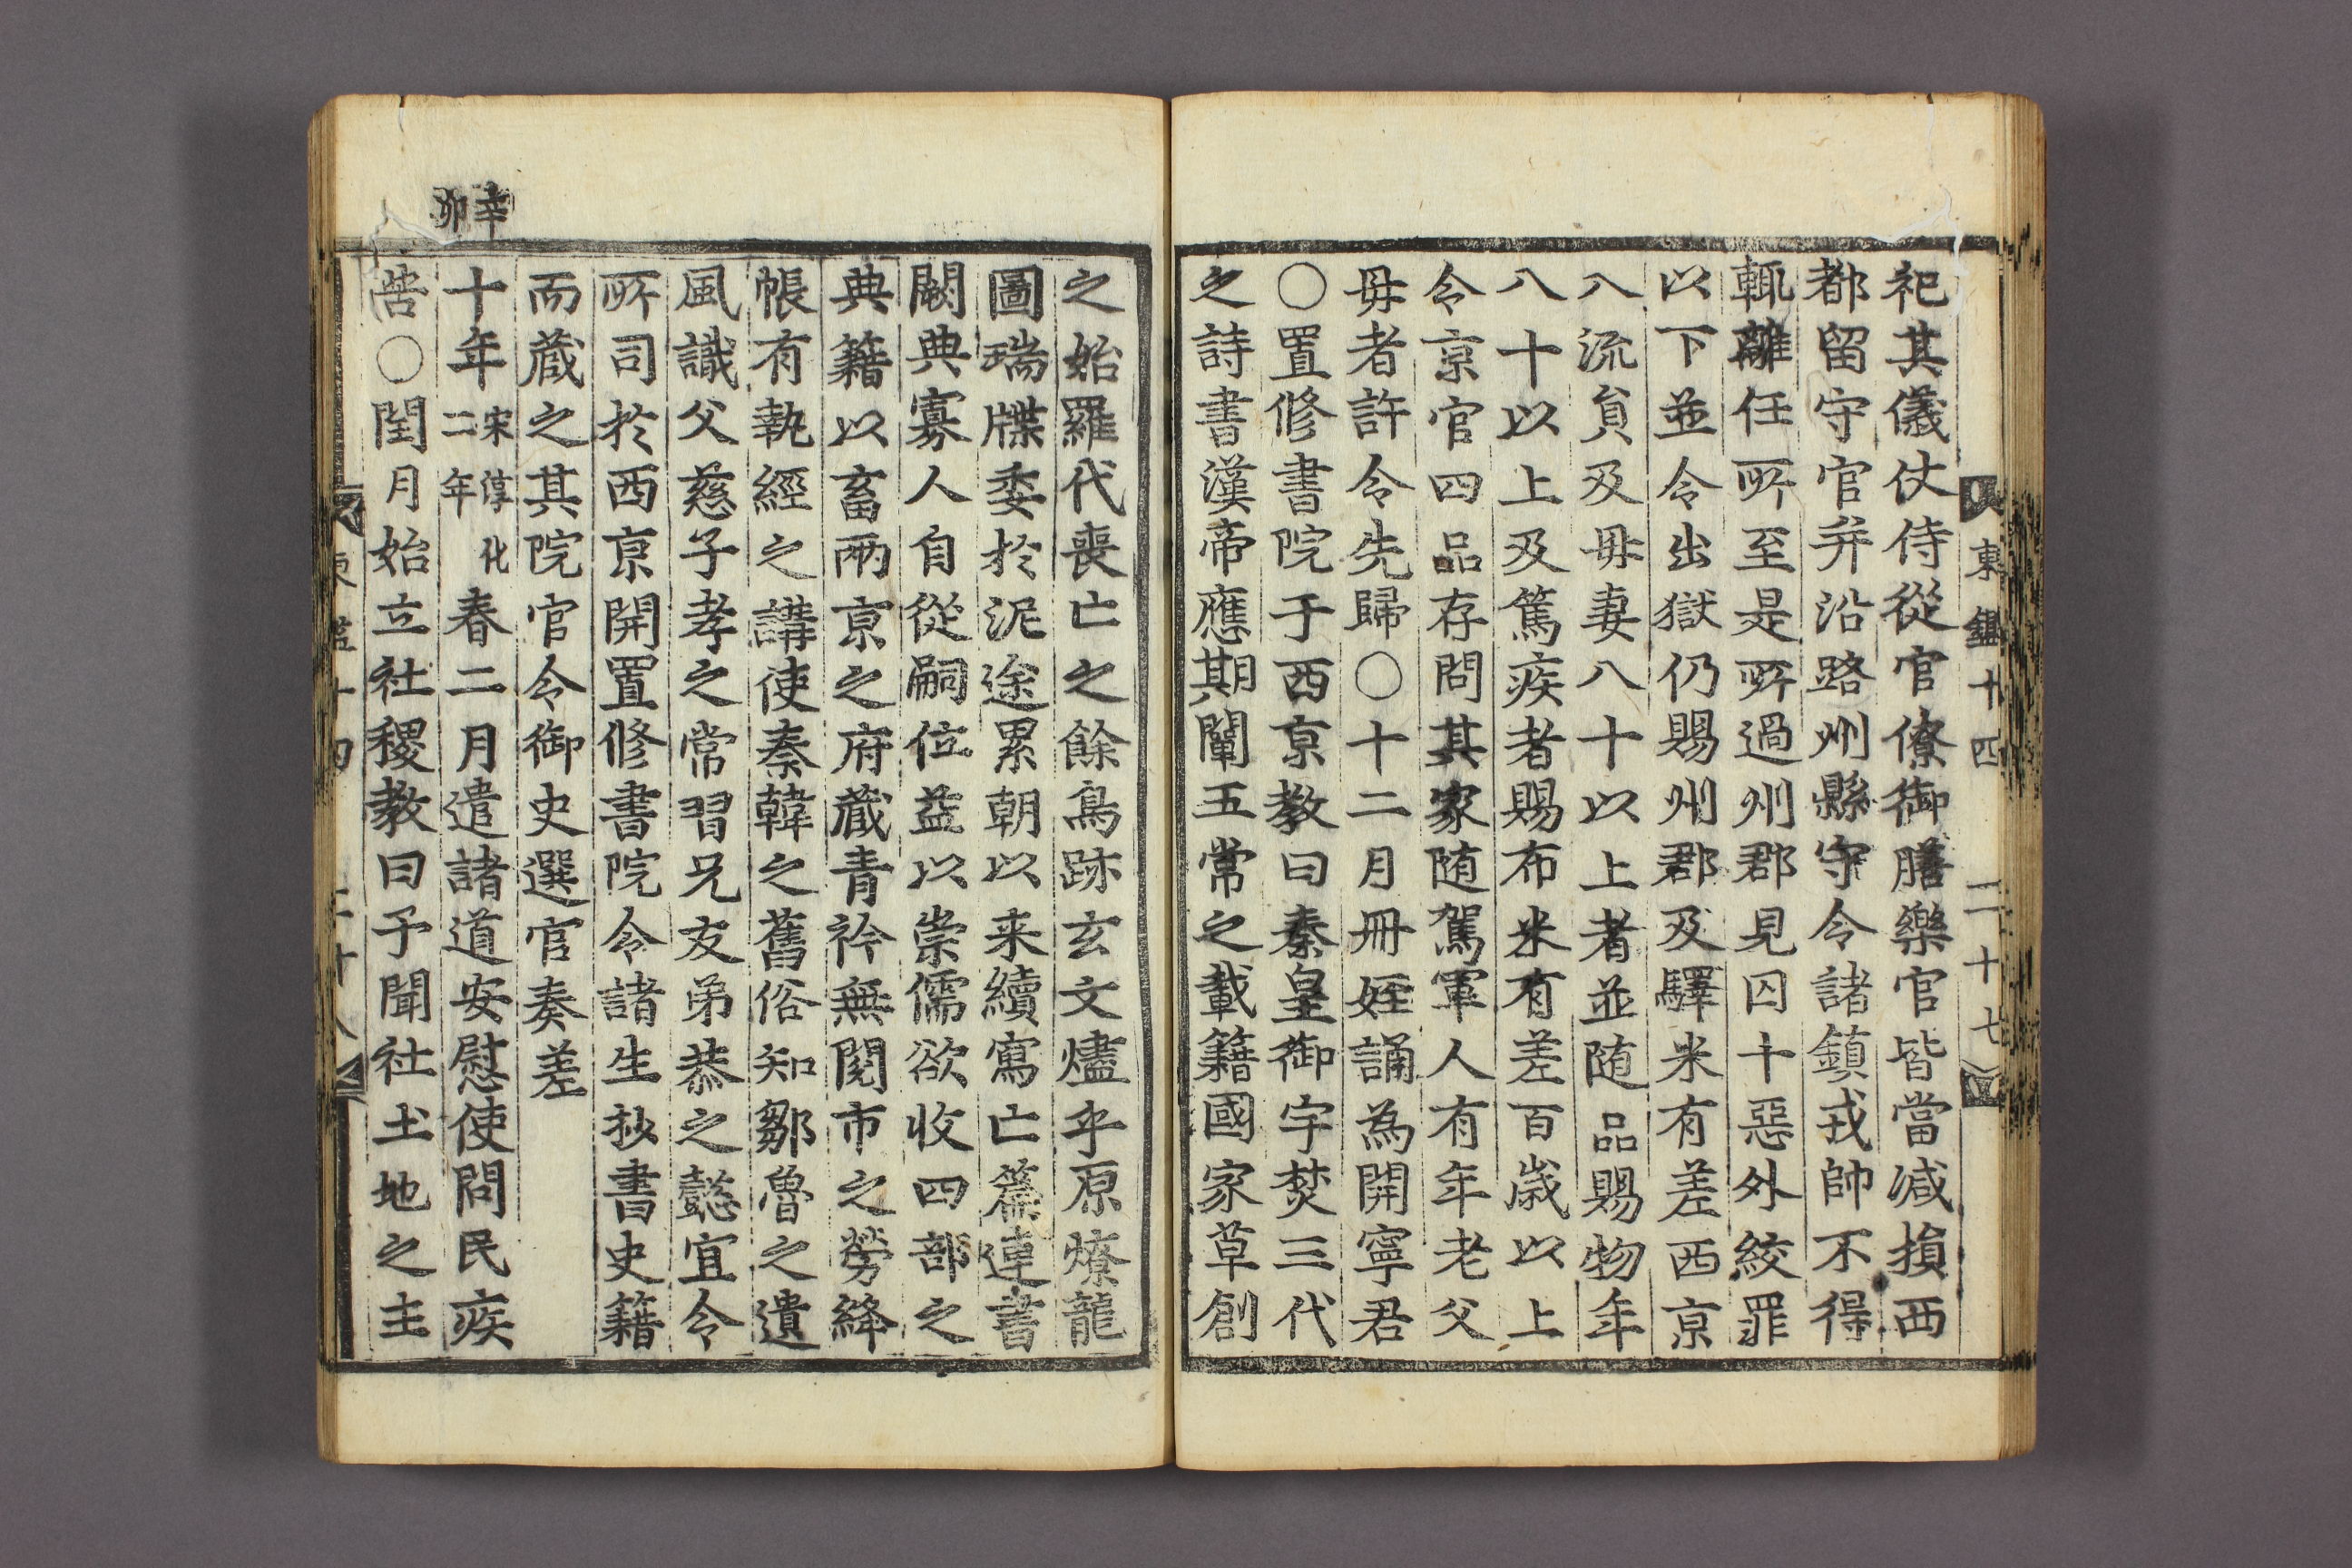 東鑑十四 二十七
祀其儀仗侍從官僚御膳樂官皆當减損西
都留守官并沿路州縣守令諸鎮戎帥不得
輒離任所至是所過州郡見囚十惡外絞罪
以下並令出獄仍賜州郡及驛米有差西京
八流貟及毋妻八十以上者並随品賜物年
八十以上及篤疾者賜布米有差百歲以上
令京官四品存問其家随駕軍人有年老父
毋者許令先歸〇十二月冊姪誦為開寧君
〇置修書院于西京教曰秦皇御宇焚三代
之詩書漢帝應期闡五常之載籍國家草創
之始羅代喪亡之餘鳥跡玄文燼乎原燎龍
圖瑞牒委於泥途累朝以来續寫亡篇連書
闕典寡人自從嗣位益以崇儒欲收四部之
典籍以畜兩京之府蔵青衿無閱市之勞絳
帳有執經之講使秦韓之舊俗知鄒魯之遺
風識父慈子孝之常習兄友弟恭之懿宜令
所司於西京開置修書院令諸生抄書史籍
而蔵之其院官令御史選官奏差
辛卯
十年宋淳化二年春二月遣諸道安慰使問民疾
苦〇閏月始立社稷教曰予聞社土地之主
東鑑十四 二十八